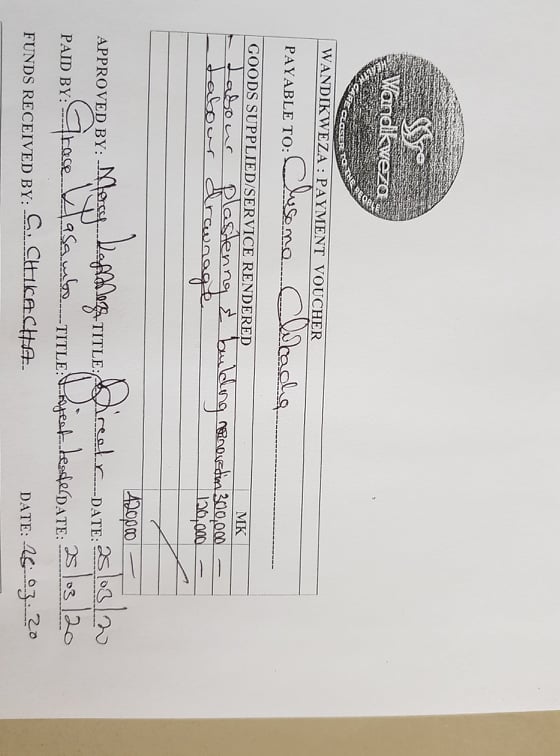 Wandikweza
WANDIKWEZA : PAYMENT VOUCHER
PAYABLE TO: Chisomo Chikacha
GOODS SUPPLIED/SERVICE RENDERED MK
- Labour Plastering & building renovation 300,000 -
- Labour drainage 120,000 -
420,000 -
APPROVED BY: Mercy TITLE: Director DATE: 25/03/20
PAID BY: Grace TITLE: Project leader DATE: 25/03/20
FUNDS RECEIVED BY: C. CHIKACHA DATE: 26.03.20